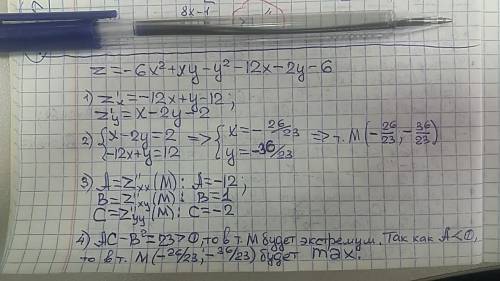 8x-1
z=-6x²+xy-y²-12x-2y-6
1) z'x=-12x+y-12;
z'y=x-2y-2
2) {x-2y=2 => {x=-26/23 => т. M(-26/23, -36/23)
{-12x+y=12 {y=-36/23
3) A=z''xx(M): A=-12;
B=z''xy(M): B=1
C=z''yy(M): C=-2
4) AC-B²=23>0, то в т. M будет экстремум. Так как A<0,
то в т. M(-26/23; -36/23) будет max.